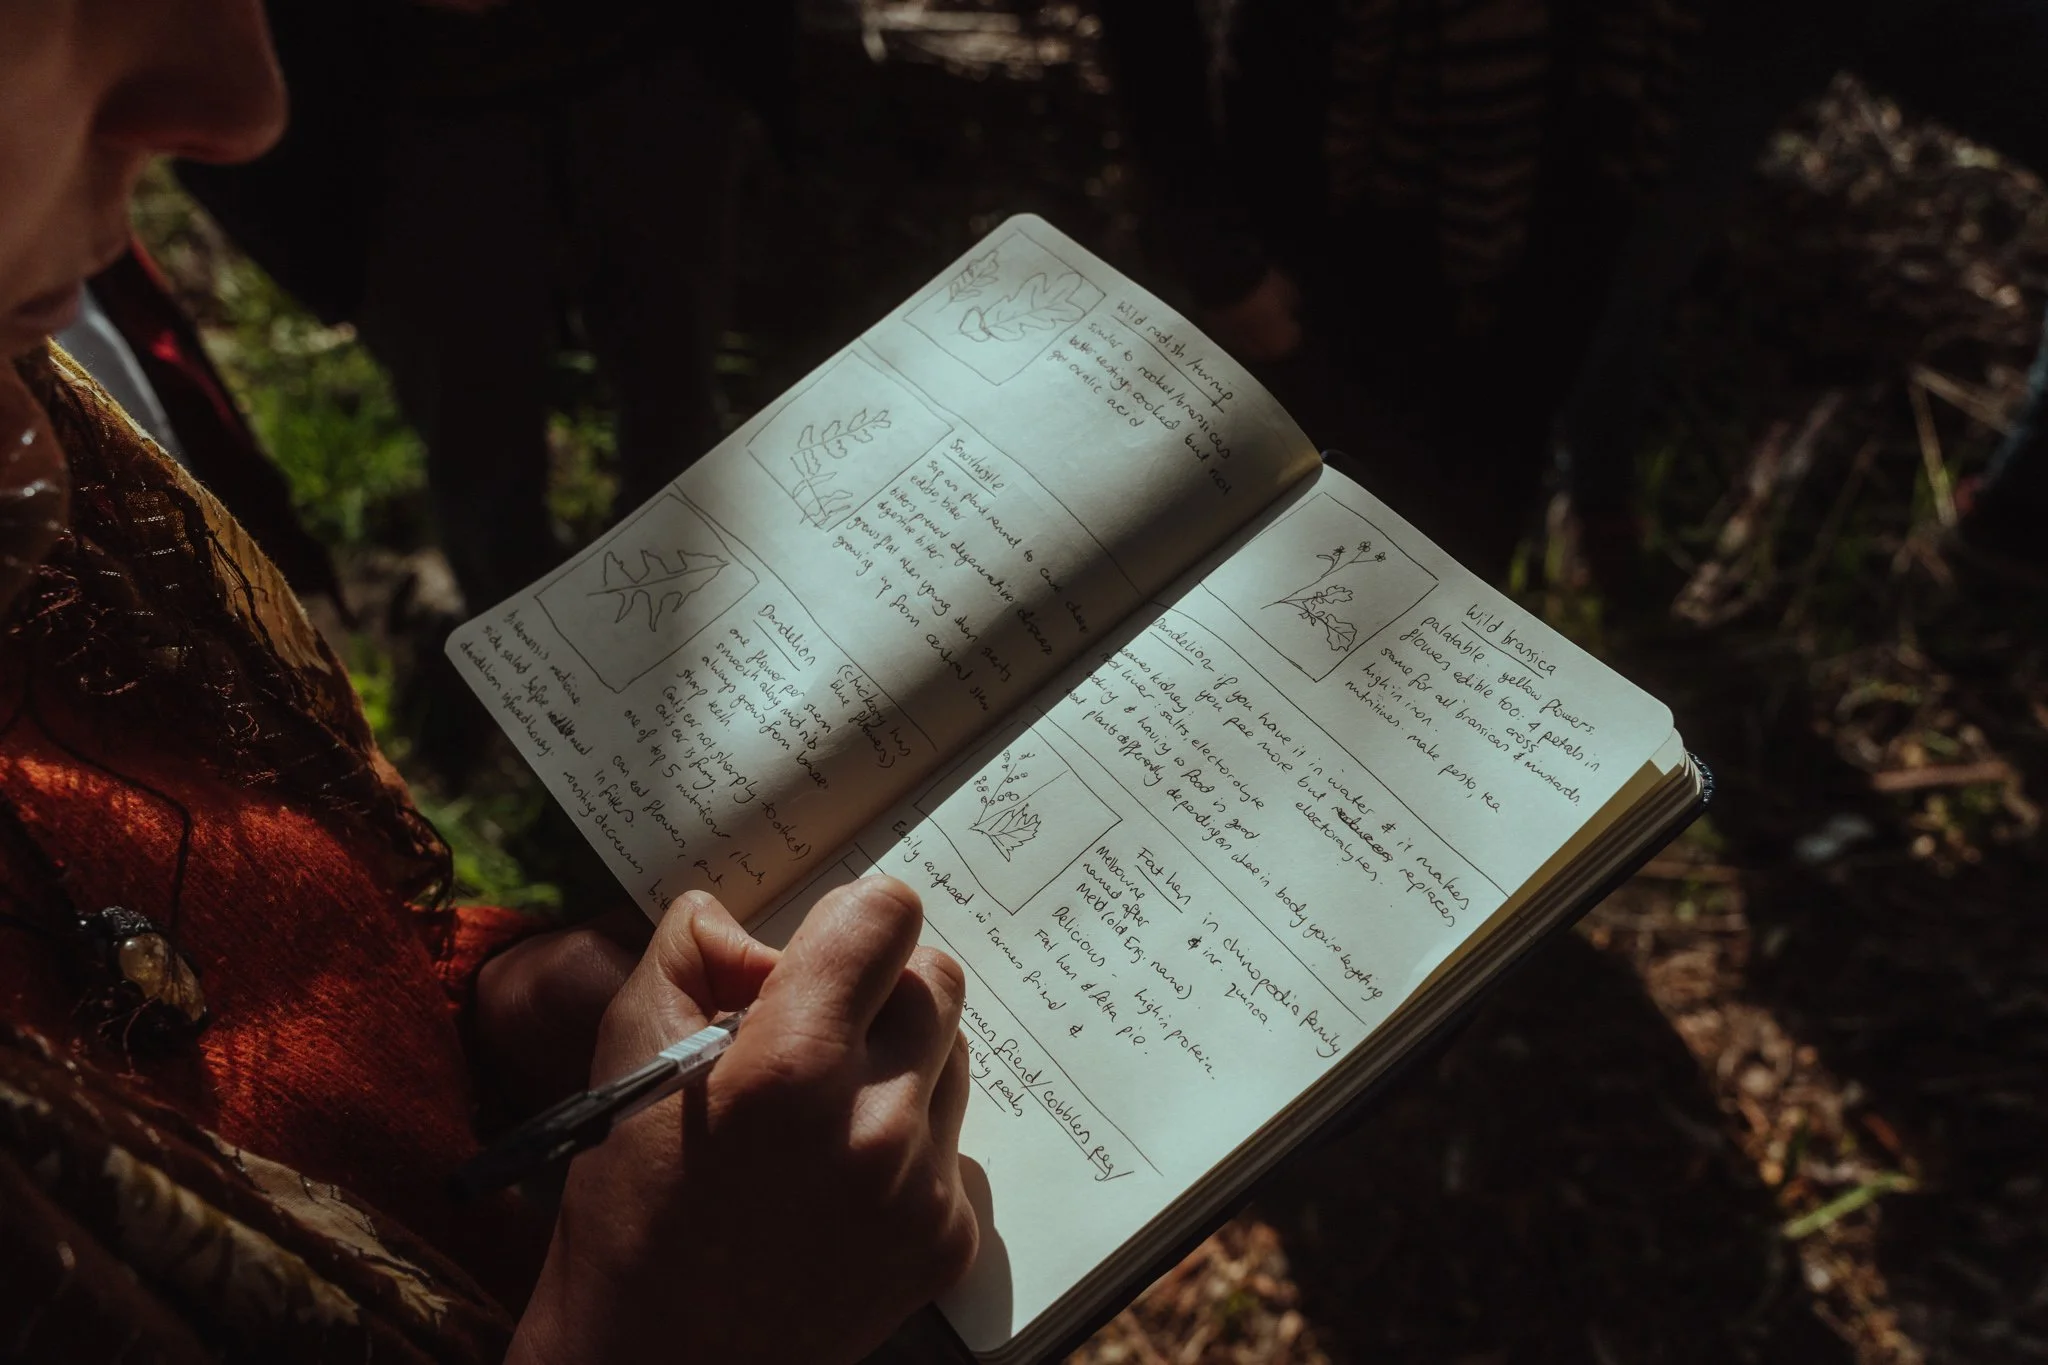 Wild radish/turnip
similar to rocket/brassicas
better tasting cooked but not
get oxalic acid
Sowthistle
sap as plant rennet to
edible, bitter
bitters prevent degenerative disease
digestive bitter.
grows flat when young then starts
growing up from central stem
Dandelion (chickory has
blue flowers)
one flower per stem
smooth along mid rib
always grows from base.
sharp teeth.
(cat's ear not sharply toothed)
cat's ear is furry.
one of top 5 nutritious plants
can eat flowers, put
in fritters.
roasting decreases
bitterness is medicine
side salad before meal
dandelion infused honey.
Wild brassica
palatable. yellow flowers.
flowers edible too. 4 petals in cross
same for all brassicas & mustards.
high in iron.
nutritives. make pesto, tea
Dandelion if you have it in water & it makes
you pee more but replaces
electrolytes.
leaves kidney.
root liver. salts, electrolyte
body & having w food is good
plants differently depending on where in body you're targeting
Fat hen in chinopodia family
& inc. quinoa.
Melbourne
named after
Meld (old Eng. name)
Delicious - high in protein.
Fat hen & fetta pie.
Easily confused w Farmers friend &
Farmers friend/cobblers peg/
sticky peaks